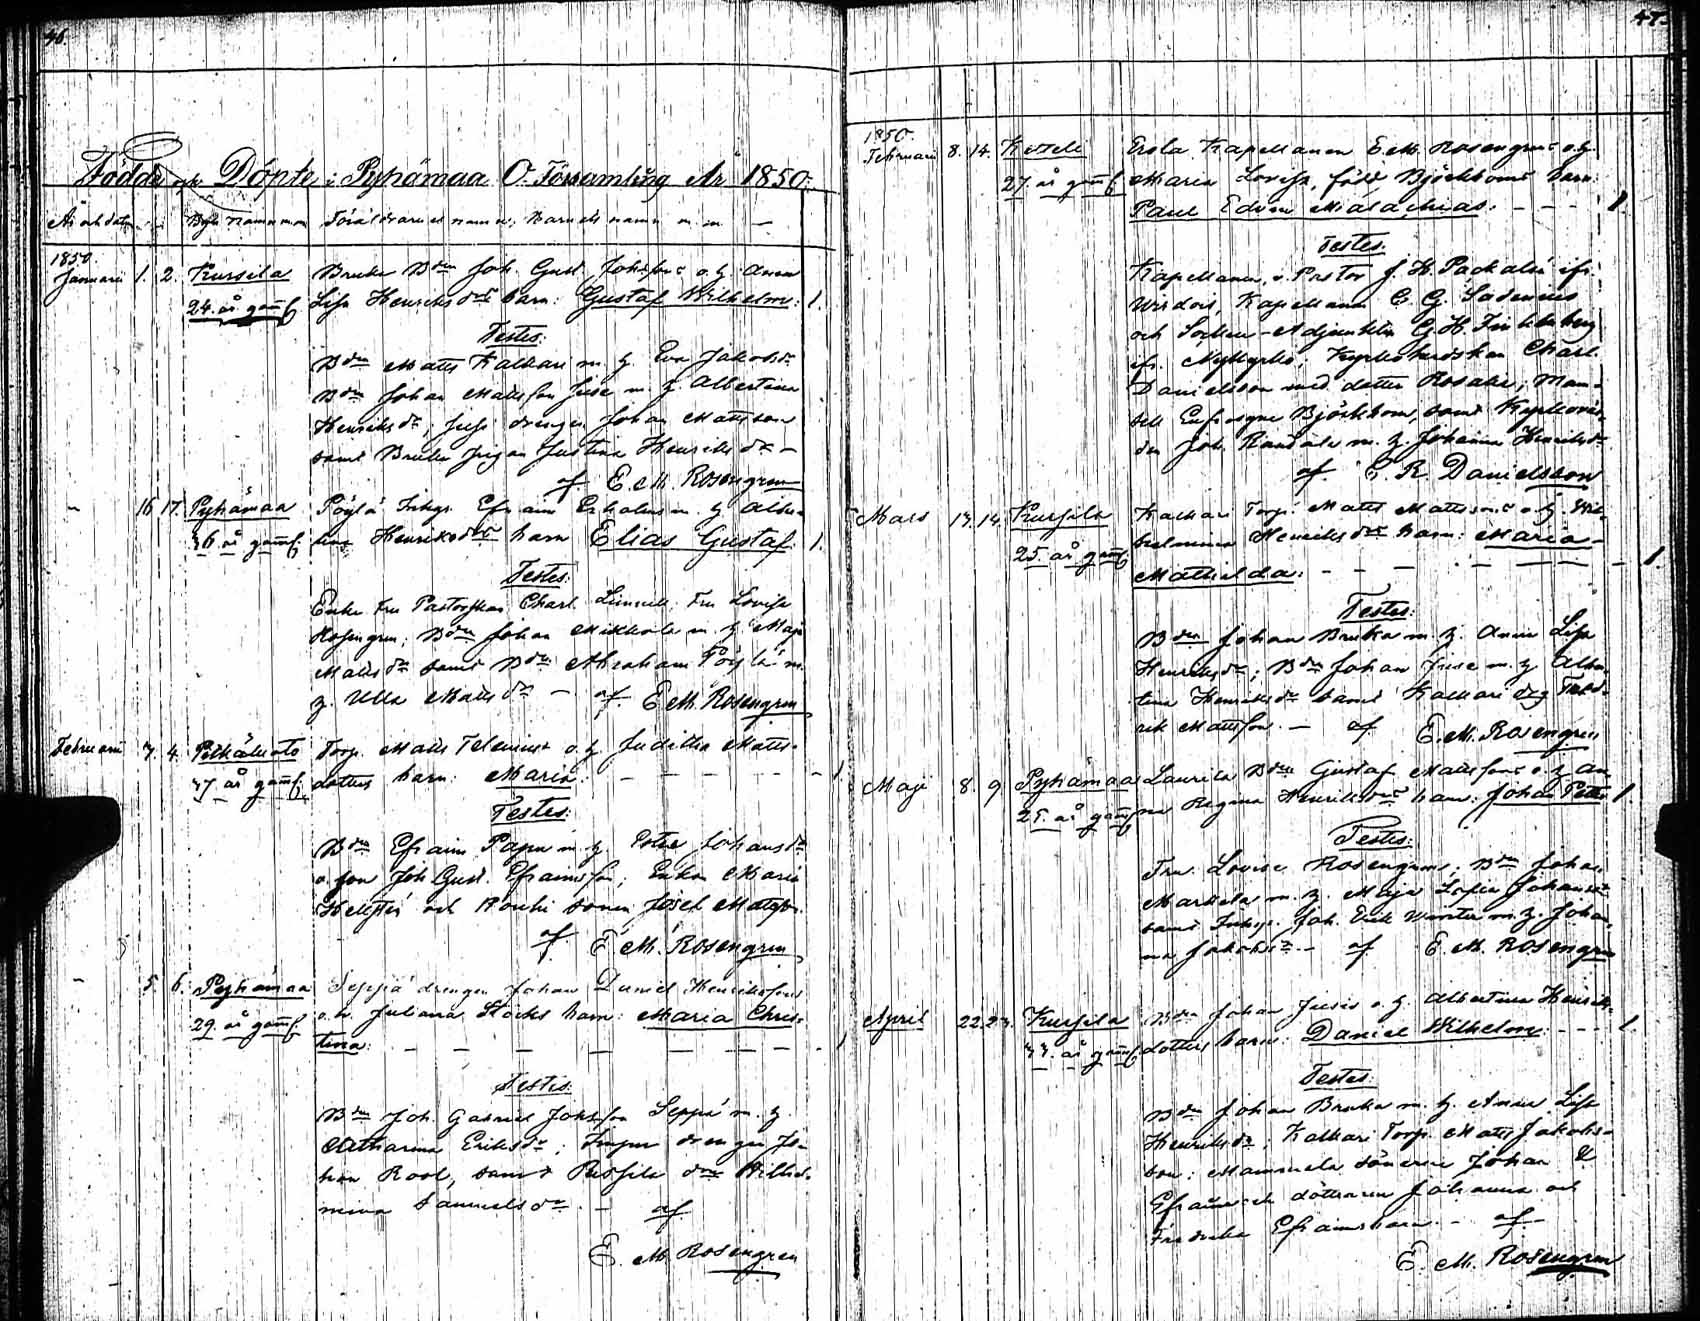 46.
Födde och Döpte i Pyhämaa O. Församling År 1850.
År och dato Byns namn Föräldrarnes namn, Barnets namn m. m. —
1850.
Januari 1. 2. Kursila Bruka Bdn Joh. Gust. Johssons o. h. Anna
24. år gaml Lisa Henriksdrs barn: Gustaf Wilhelm: 1.
Testes:
Bdn Matts Kalkari m. h. Eva Jakobsdr
Bdn Johan Mattsson Juse m. h. Albertina
Henriksdr, Jusi drängen Johan Mattsson
samt Bruka pigan Justina Henriksdr —
af E. M. Rosengren
16 17. Pyhämaa Pöylä Inhys. Efraim m. h. Alber-
36. år gaml. tina Henriksdrs barn Elias Gustaf. 1.
Testes:
Enke Fru Pastorskan Charl. Fru Lovisa
Rosengren; Bdn Johan Mikkola m. h. Maja
Mattsdr samt Bdn Abraham Pöylä m.
h. Ulla Mattsdr — af E. M. Rosengren
Februari 3. 4. Pitkäluoto Torp. Matts Telenius o. h. Juditha Matts-
37 år gaml. dotters barn: Maria: — — — — 1
Testes:
Bdn Efraim Papu m. h. Johansdr
o. son Joh. Gust. Efraimsson; Enkan Maria
och sonen Josef Mattsson.
af E. M. Rosengren
5. 6. Pyhämaa Seppä drängen Johan Daniel Henrikssons
29. år gaml. o. h. Juliana Stocks barn: Maria Chris-
tina: — — — — — — 1
Testes:
Bdn Joh. Gabriel Johsson Seppä m. h.
Catharina Eriksdr; drängen Jo-
han Roos, samt Wilhel-
mina Samuelsdr. — af
E. M. Rosengren
47.
1850.
Februari 8. 14. Ketteli Ersta Kapellanen E. M. Rosengrens o. h.
27. år gaml Maria Lovisa, född Björkboms barn:
Paul Edvin Malachias: — — — 1.
Testes:
Kapellanen, v. Pastor J. H. Packalén ifr.
Kapellanen C. G. Sadenius
och Socken-Adjunkten G. H.
ifr. Nykyrko; Charl.
Danielsson med dotter Rosalie; Mam-
sell Björkbom, samt Kyrkovär-
den Joh. Rantala m. h. Johanna Henriksdr
af C. R. Danielsson
Mars 13. 14. Kursila Kalkari Torp. Matts Mattssons o. h. Wil-
25. år gaml. helmina Henriksdrs barn: Maria
Mathilda: — — — — — — 1.
Testes:
Bdn Johan Bruka m. h. Anna Lisa
Henriksdr; Bdn Johan Juse m. h. Alber-
tina Henriksdr samt Kalkari drg Fred-
rik Mattsson. — af E. M. Rosengren
Maji 8. 9 Pyhämaa Laurila Bdn Gustaf Mattssons o. h. An-
25. år gaml na Regina Henriksdrs barn: Johan Petter 1.
Testes:
Fru Lovise Rosengren; Bdn Johan
Markula m. h. Maja Lisa Johansdr
samt Inhys. Joh. Erik m. h. Johan-
na Jakobsdr. — af E. M. Rosengren
April 22. 23. Kursila Bdn Johan Jusis o. h. Albertina Henriks-
33. år gaml dotters barn: Daniel Wilhelm: — — — 1.
Testes:
Bdn Johan Bruka m. h. Anna Lisa
Henriksdr; Kalkari Torp. Matts Jakobs-
son; Mammala sönerne Johan &
Efraim och döttrarna Johanna och
Fredrika Efraimsbarn. — af
E. M. Rosengren